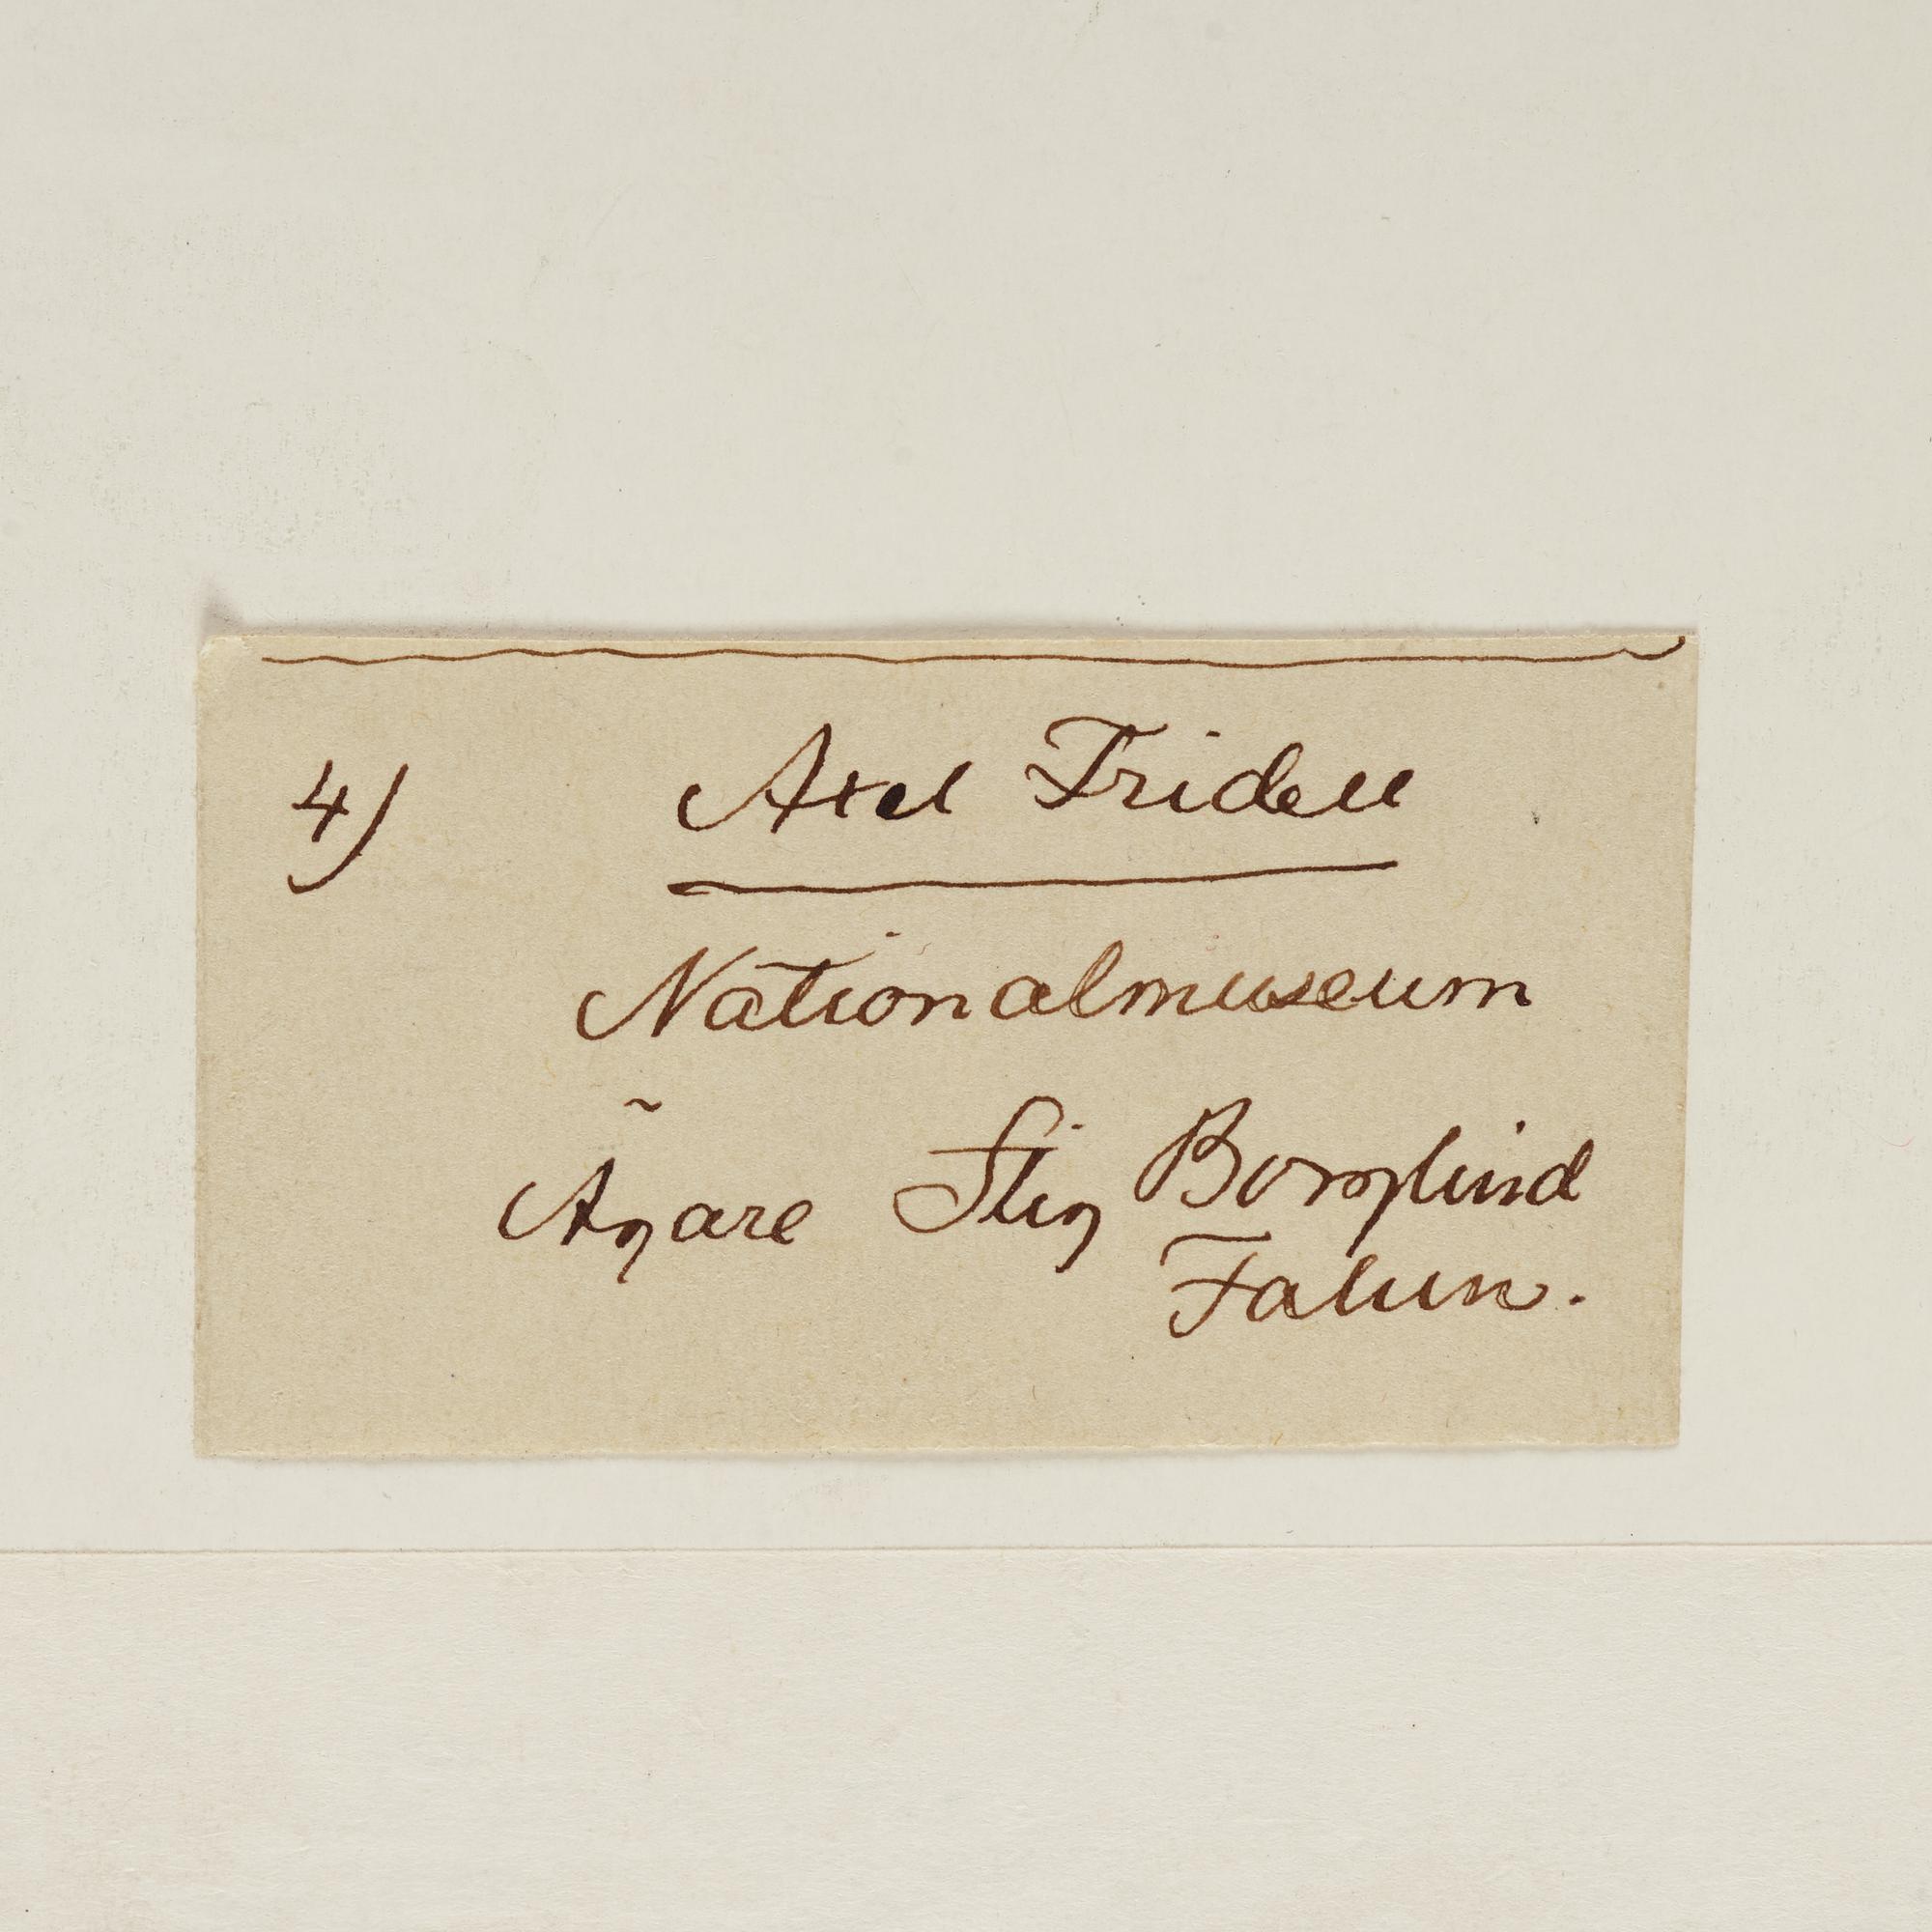 4) Axel Fridell
Nationalmuseum
Ägare Stig Borglind
Falun.